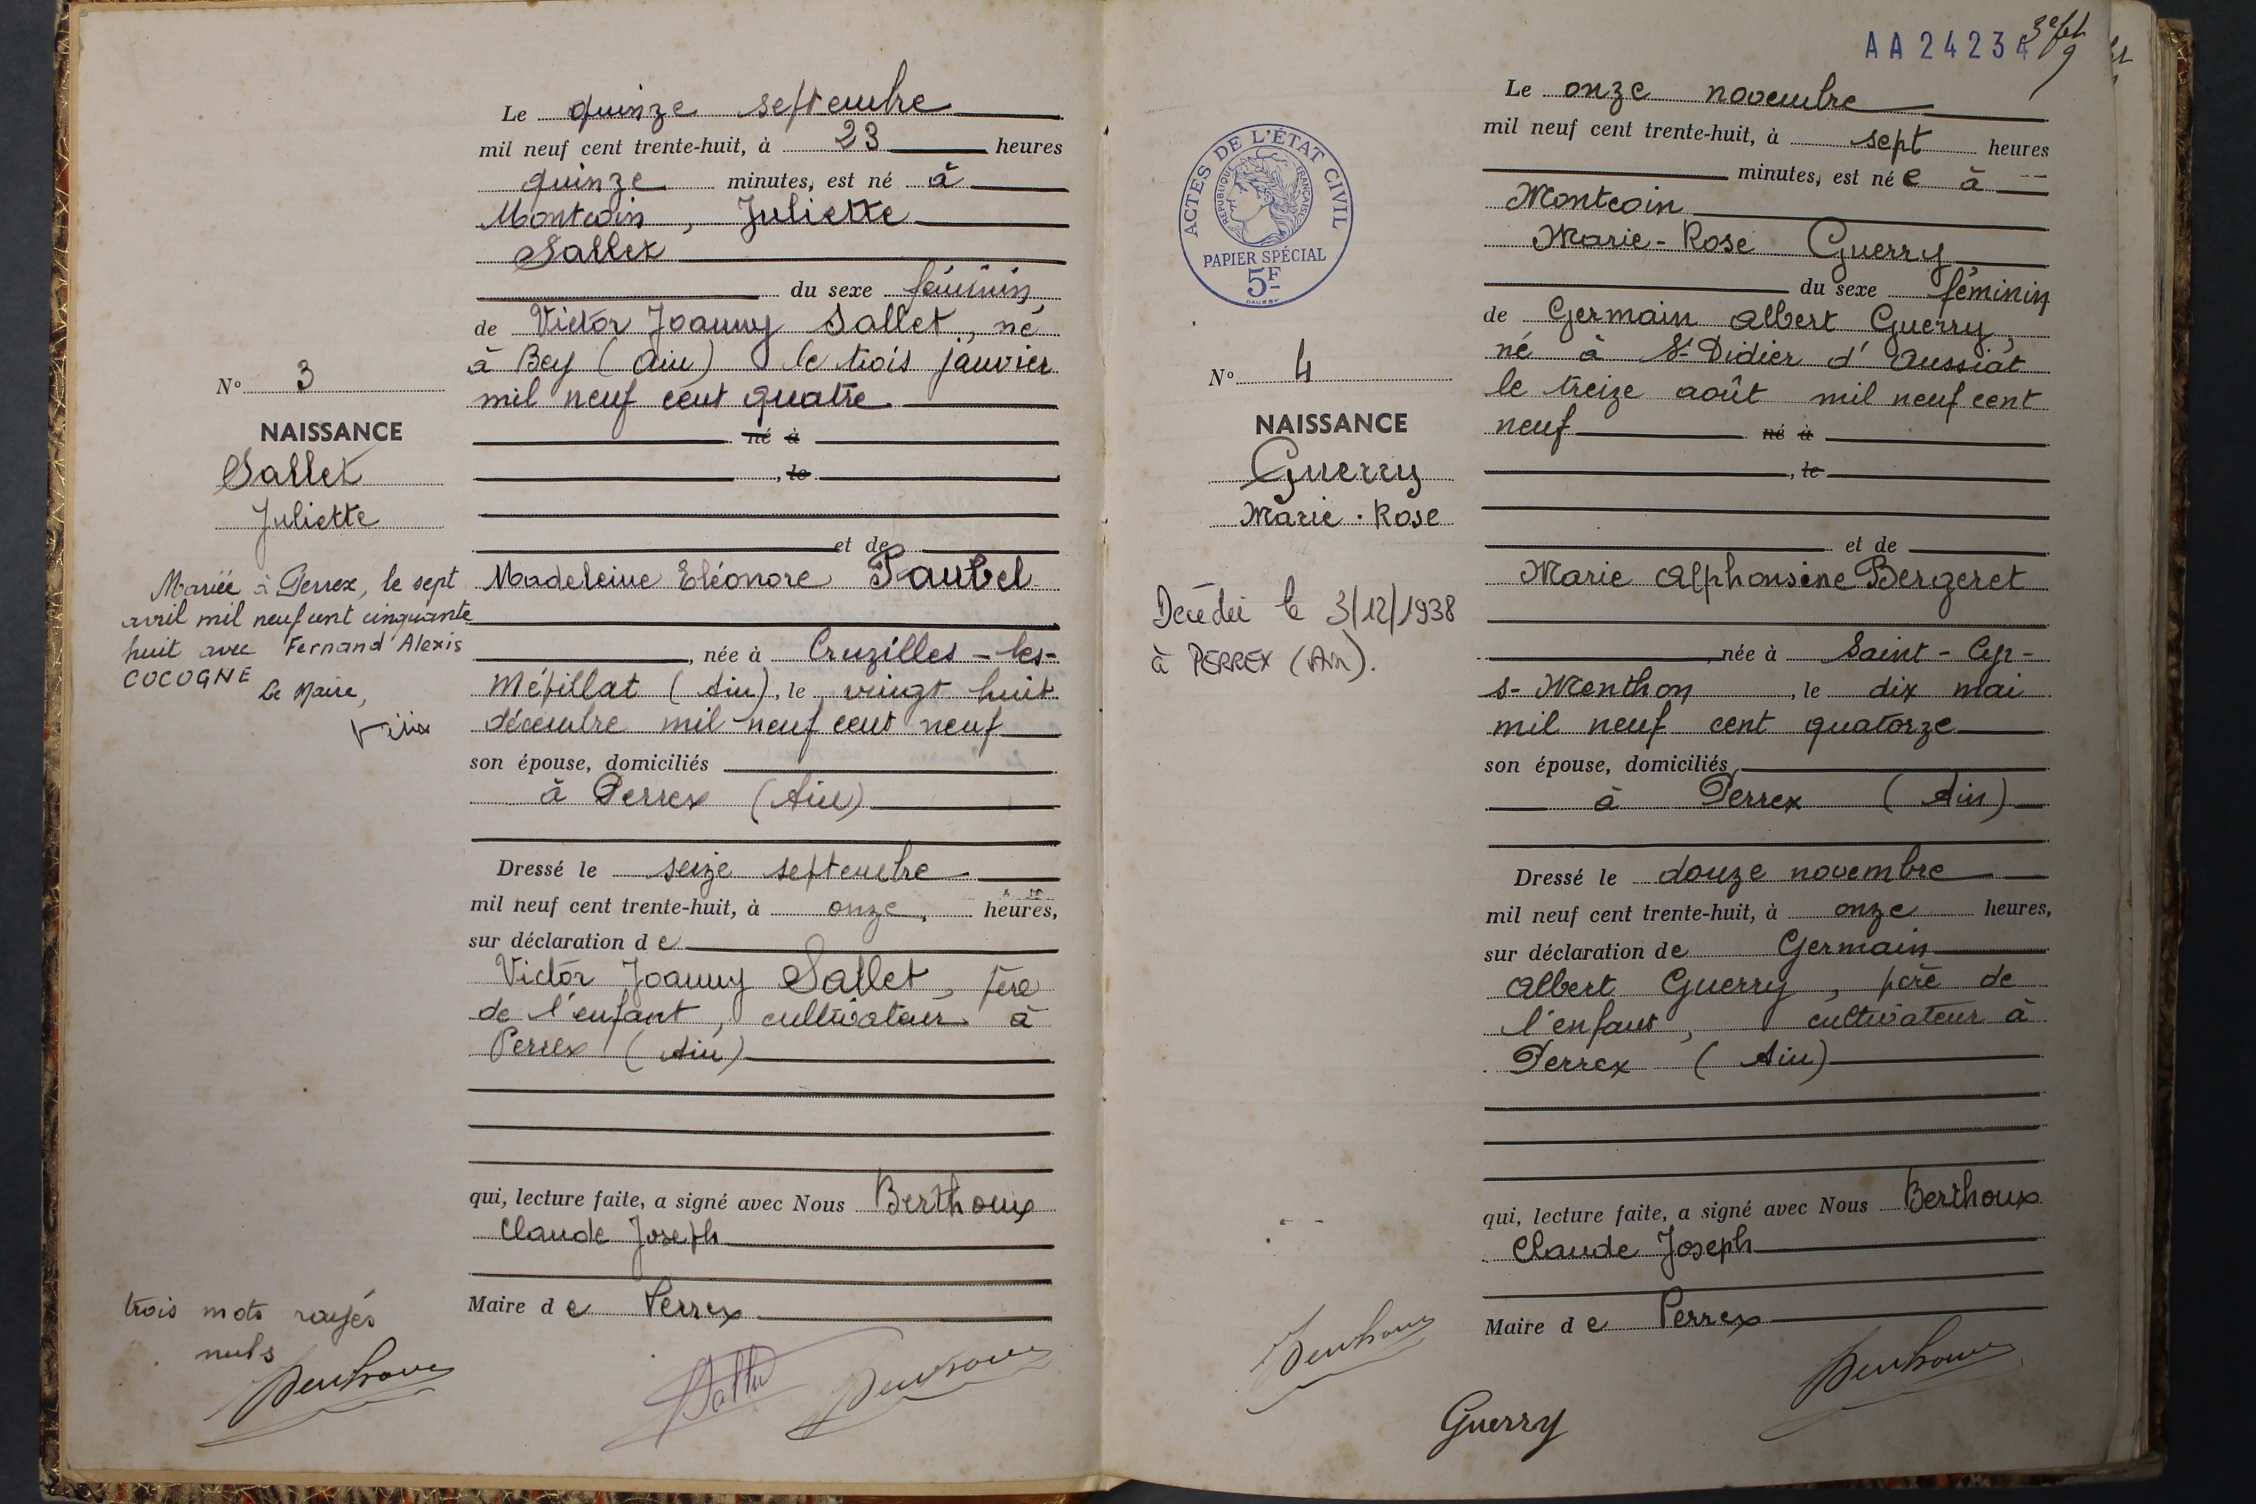 Le quinze septembre
mil neuf cent trente-huit, à 23 heures
quinze minutes, est né à
Montcoin, Juliette
Sallet
du sexe féminin
de Victor Joanny Sallet, né
à Bey (Ain) le trois janvier
mil neuf cent quatre
né à
, le
et de
Madeleine Eléonore Paubel
, née à Cruzilles-les-
Mépillat (Ain), le vingt huit
décembre mil neuf cent neuf
son épouse, domiciliés
à Perrex (Ain)
Dressé le seize septembre
mil neuf cent trente-huit, à onze, heures,
sur déclaration de
Victor Joanny Sallet, père
de l'enfant, cultivateur à
Perrex (Ain)
qui, lecture faite, a signé avec Nous Berthoux
Claude Joseph
Maire de Perrex
N° 3
NAISSANCE
Sallet
Juliette
Mariée à Perrex, le sept
avril mil neuf cent cinquante
huit avec Fernand Alexis
COCOGNE
Le Maire,
trois mots rayés
nuls
Berthoux
Sallet
Berthoux
AA 24234
3e fet
9
ACTES DE L'ÉTAT CIVIL
RÉPUBLIQUE FRANÇAISE
PAPIER SPÉCIAL
5F
Le onze novembre
mil neuf cent trente-huit, à sept heures
minutes, est née à
Montcoin
Marie-Rose Guerry
du sexe féminin
de Germain Albert Guerry,
né à St Didier d'Aussiat
le treize août mil neuf cent
neuf né à
, le
et de
Marie Alphonsine Bergeret
, née à Saint-Cyr-
s-Menthon, le dix mai
mil neuf cent quatorze
son épouse, domiciliés
à Perrex (Ain)
Dressé le douze novembre
mil neuf cent trente-huit, à onze heures,
sur déclaration de Germain
Albert Guerry, père de
l'enfant, cultivateur à
Perrex (Ain)
qui, lecture faite, a signé avec Nous Berthoux
Claude Joseph
Maire de Perrex
N° 4
NAISSANCE
Guerry
Marie-Rose
Décédée le 3/12/1938
à PERREX (Ain).
Berthoux
Guerry
Berthoux